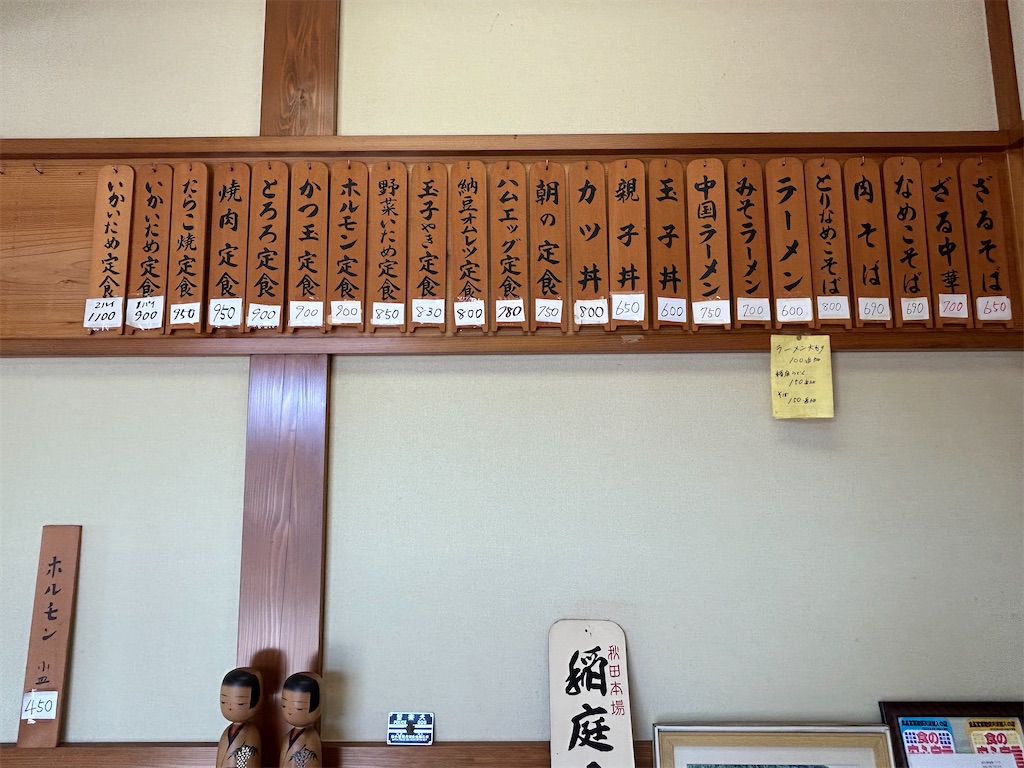 ざるそば
650
ざる中華
700
なめこそば
690
肉そば
690
とりなめこそば
800
ラーメン
600
みそラーメン
700
中国ラーメン
750
玉子丼
600
親子丼
650
カツ丼
800
朝の定食
750
ハムエッグ定食
780
納豆オムレツ定食
800
玉子やき定食
830
野菜いため定食
850
ホルモン定食
900
かつ玉定食
900
とろろ定食
900
焼肉定食
950
たらこ焼定食
950
いかいため定食
1パイ
900
いかいため定食
2ハイ
1100
ラーメン大もり
100
150
そば
150
ホルモン 小皿
450
秋田本場
稲庭
食の
食の